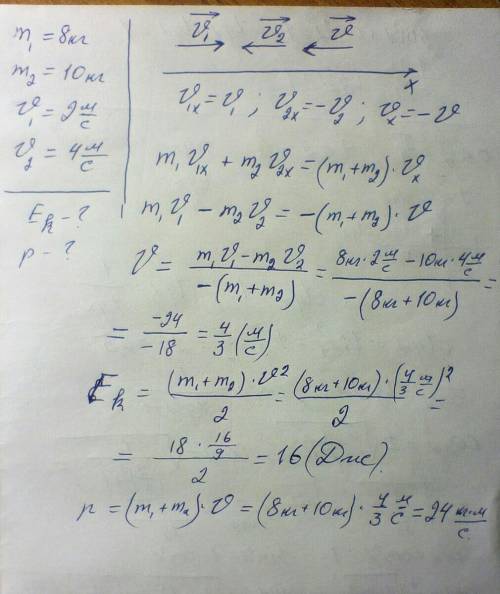 m₁ = 8кг
m₂ = 10кг
υ₁ = 2 м/с
υ₂ = 4 м/с
E_k - ?
p - ?
υ₁→ υ₂→ υ→
x
υ₁ₓ = υ₁ ; υ₂ₓ = -υ₂ ; υₓ = -υ
m₁υ₁ₓ + m₂υ₂ₓ = (m₁+m₂)·υₓ
m₁υ₁ - m₂υ₂ = -(m₁+m₂)·υ
υ = (m₁υ₁ - m₂υ₂)/(-(m₁+m₂)) = (8кг·2 м/с - 10кг·4 м/с)/(-(8кг+10кг)) =
= -24/-18 = 4/3 (м/с)
E_k = ((m₁+m₂)·υ²)/2 = ((8кг+10кг)·(4/3 м/с)²)/2 =
= (18·16/9)/2 = 16 (Дж).
p = (m₁+m₂)·υ = (8кг+10кг)·4/3 м/с = 24 кг·м/с